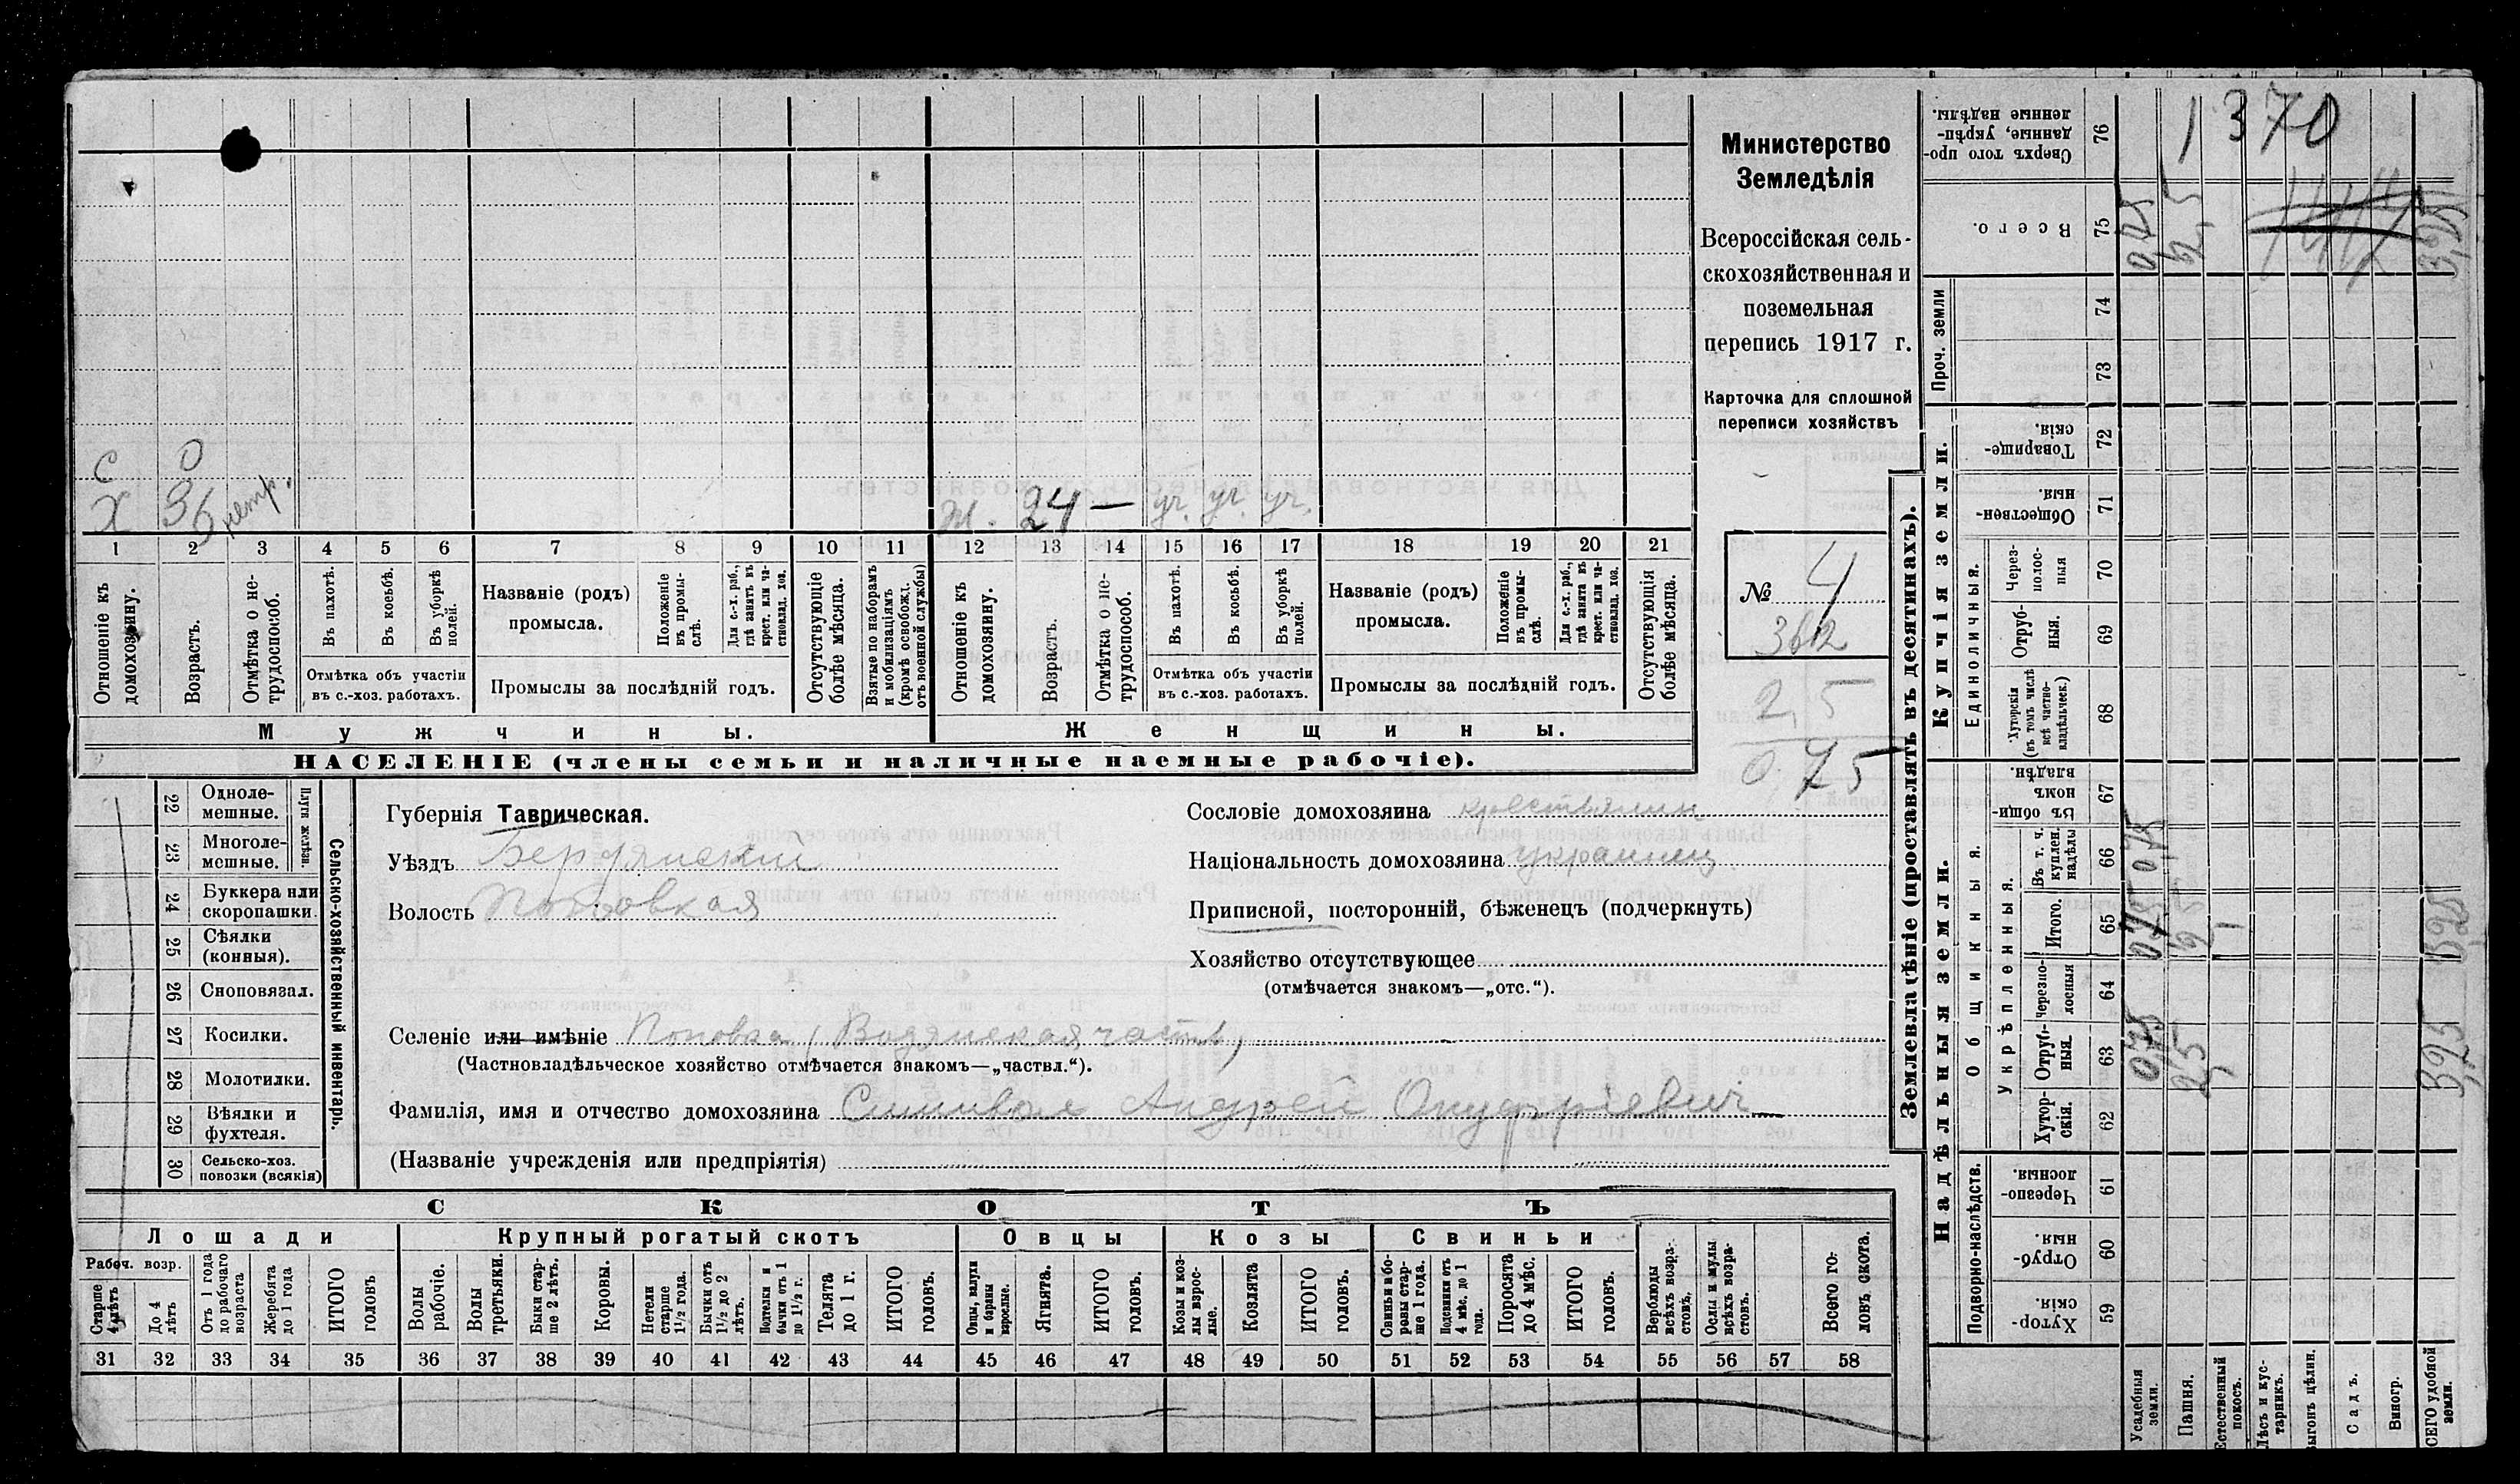 С О
Х 36 нетр. Ж. 24 — уч. уч. уч.
1 2 3 4 5 6 7 8 9 10 11 12 13 14 15 16 17 18 19 20 21
Отношеніе къ домохозяину.
Возрастъ.
Отмѣтка о не-трудоспособ.
Въ пахотѣ.
Въ косьбѣ.
Въ уборкѣ полей.
Отмѣтка объ участіи
въ с.-хоз. работахъ.
Названіе (родъ)
промысла.
Положеніе въ промы-слѣ.
Для с.-х. раб., гдѣ занятъ въ крест. или ча-стновлад. хоз.
Промыслы за послѣдній годъ.
Отсутствующіе болѣе мѣсяца.
Взятые по наборамъ и мобилизаціямъ (кромѣ освобожд. отъ военной службы)
Отношеніе къ домохозяину.
Возрастъ.
Отмѣтка о не-трудоспособ.
Въ пахотѣ.
Въ косьбѣ.
Въ уборкѣ полей.
Отмѣтка объ участіи
въ с.-хоз. работахъ.
Названіе (родъ)
промысла.
Положеніе въ промы-слѣ.
Для с.-х. раб., гдѣ занята въ крест. или ча-стновлад. хоз.
Промыслы за послѣдній годъ.
Отсутствующія болѣе мѣсяца.
Мужчины.
Женщины.
НАСЕЛЕНІЕ (члены семьи и наличные наемные рабочіе).
Министерство
Земледѣлія
Всероссійская сель-
скохозяйственная и
поземельная
перепись 1917 г.
Карточка для сплошной
переписи хозяйствъ
№ 4
2,5
0,75
22 Одноле-мешные.
23 Многоле-мешные.
Плуги желѣзн.
24 Буккера или скоропашки.
25 Сѣялки (конныя).
26 Сноповязал.
27 Косилки.
28 Молотилки.
29 Вѣялки и фухтеля.
30 Сельско-хоз. повозки (всякія)
Сельско-хозяйственный инвентарь.
Губернія Таврическая.
Уѣздъ Бердянский
Волость Поповская
Сословіе домохозяина крестьянин
Національность домохозяина украинец
Приписной, посторонній, бѣженецъ (подчеркнуть)
Хозяйство отсутствующее
(отмѣчается знакомъ—„отс.“).
Селеніе или имѣніе Поповка (Водянская часть)
(Частновладѣльческое хозяйство отмѣчается знакомъ—„частвл.“).
Фамилія, имя и отчество домохозяина Андрей Онуфріевич
(Названіе учрежденія или предпріятія)
СКОТЪ
Лошади Крупный рогатый скотъ Овцы Козы Свиньи
Рабоч. возр.
Старше 4 лѣтъ
До 4 лѣтъ
Отъ 1 года до рабочаго возраста
Жеребята до 1 года
ИТОГО головъ
Волы рабочіе.
Волы третьяки.
Быки стар-ше 2 лѣтъ.
Коровы.
Нетели старше 1½ года.
Бычки отъ 1½ до 2 лѣтъ.
Подтелки и бычки отъ 1 до 1½ г.
Телята до 1 г.
ИТОГО головъ.
Овцы, валухи и бараны взрослые.
Ягнята.
ИТОГО головъ.
Козы и коз-лы взрос-лые.
Козлята
ИТОГО головъ.
Свиньи и бо-ровы стар-ше 1 года.
Подсвинки отъ 4 мѣс. до 1 года.
Поросята до 4 мѣс.
ИТОГО головъ.
Верблюды всѣхъ возра-стовъ.
Ослы и мулы всѣхъ возра-стовъ.
Всего го-ловъ скота.
31 32 33 34 35 36 37 38 39 40 41 42 43 44 45 46 47 48 49 50 51 52 53 54 55 56 57 58
Землевладѣніе (проставлять въ десятинахъ).
Надѣльныя земли.
Купчія земли.
Проч. земли
Подворно-наслѣдств.
Общинныя.
Укрѣпленныя.
Единоличныя.
76 Сверхъ того про-данные, укрѣп-ленные надѣлы.
1370
75 Всего.
74
73
72 Товарище-скія.
71 Обществен-ныя
70 Через-полос-ныя
69 Отруб-ныя.
68 Хуторскія (въ томъ числѣ всѣ частно-владѣльческ.)
67 Въ общи-номъ владѣн.
66 Въ т. ч. куплен. надѣлы 0,75
65 Итого. 0,75
64 Черезпо-лосныя
63 Отруб-ныя. 0,75 2,5 3,25
62 Хутор-скія.
61 Черезпо-лосныя
60 Отруб-ныя.
59 Хутор-скія.
Усадебныя земли.
Пашня.
Естественный покосъ.
Лѣсъ и кус-тарникъ.
Выгонъ цѣлин.
Садъ.
Виногр.
ВСЕГО удобной земли.